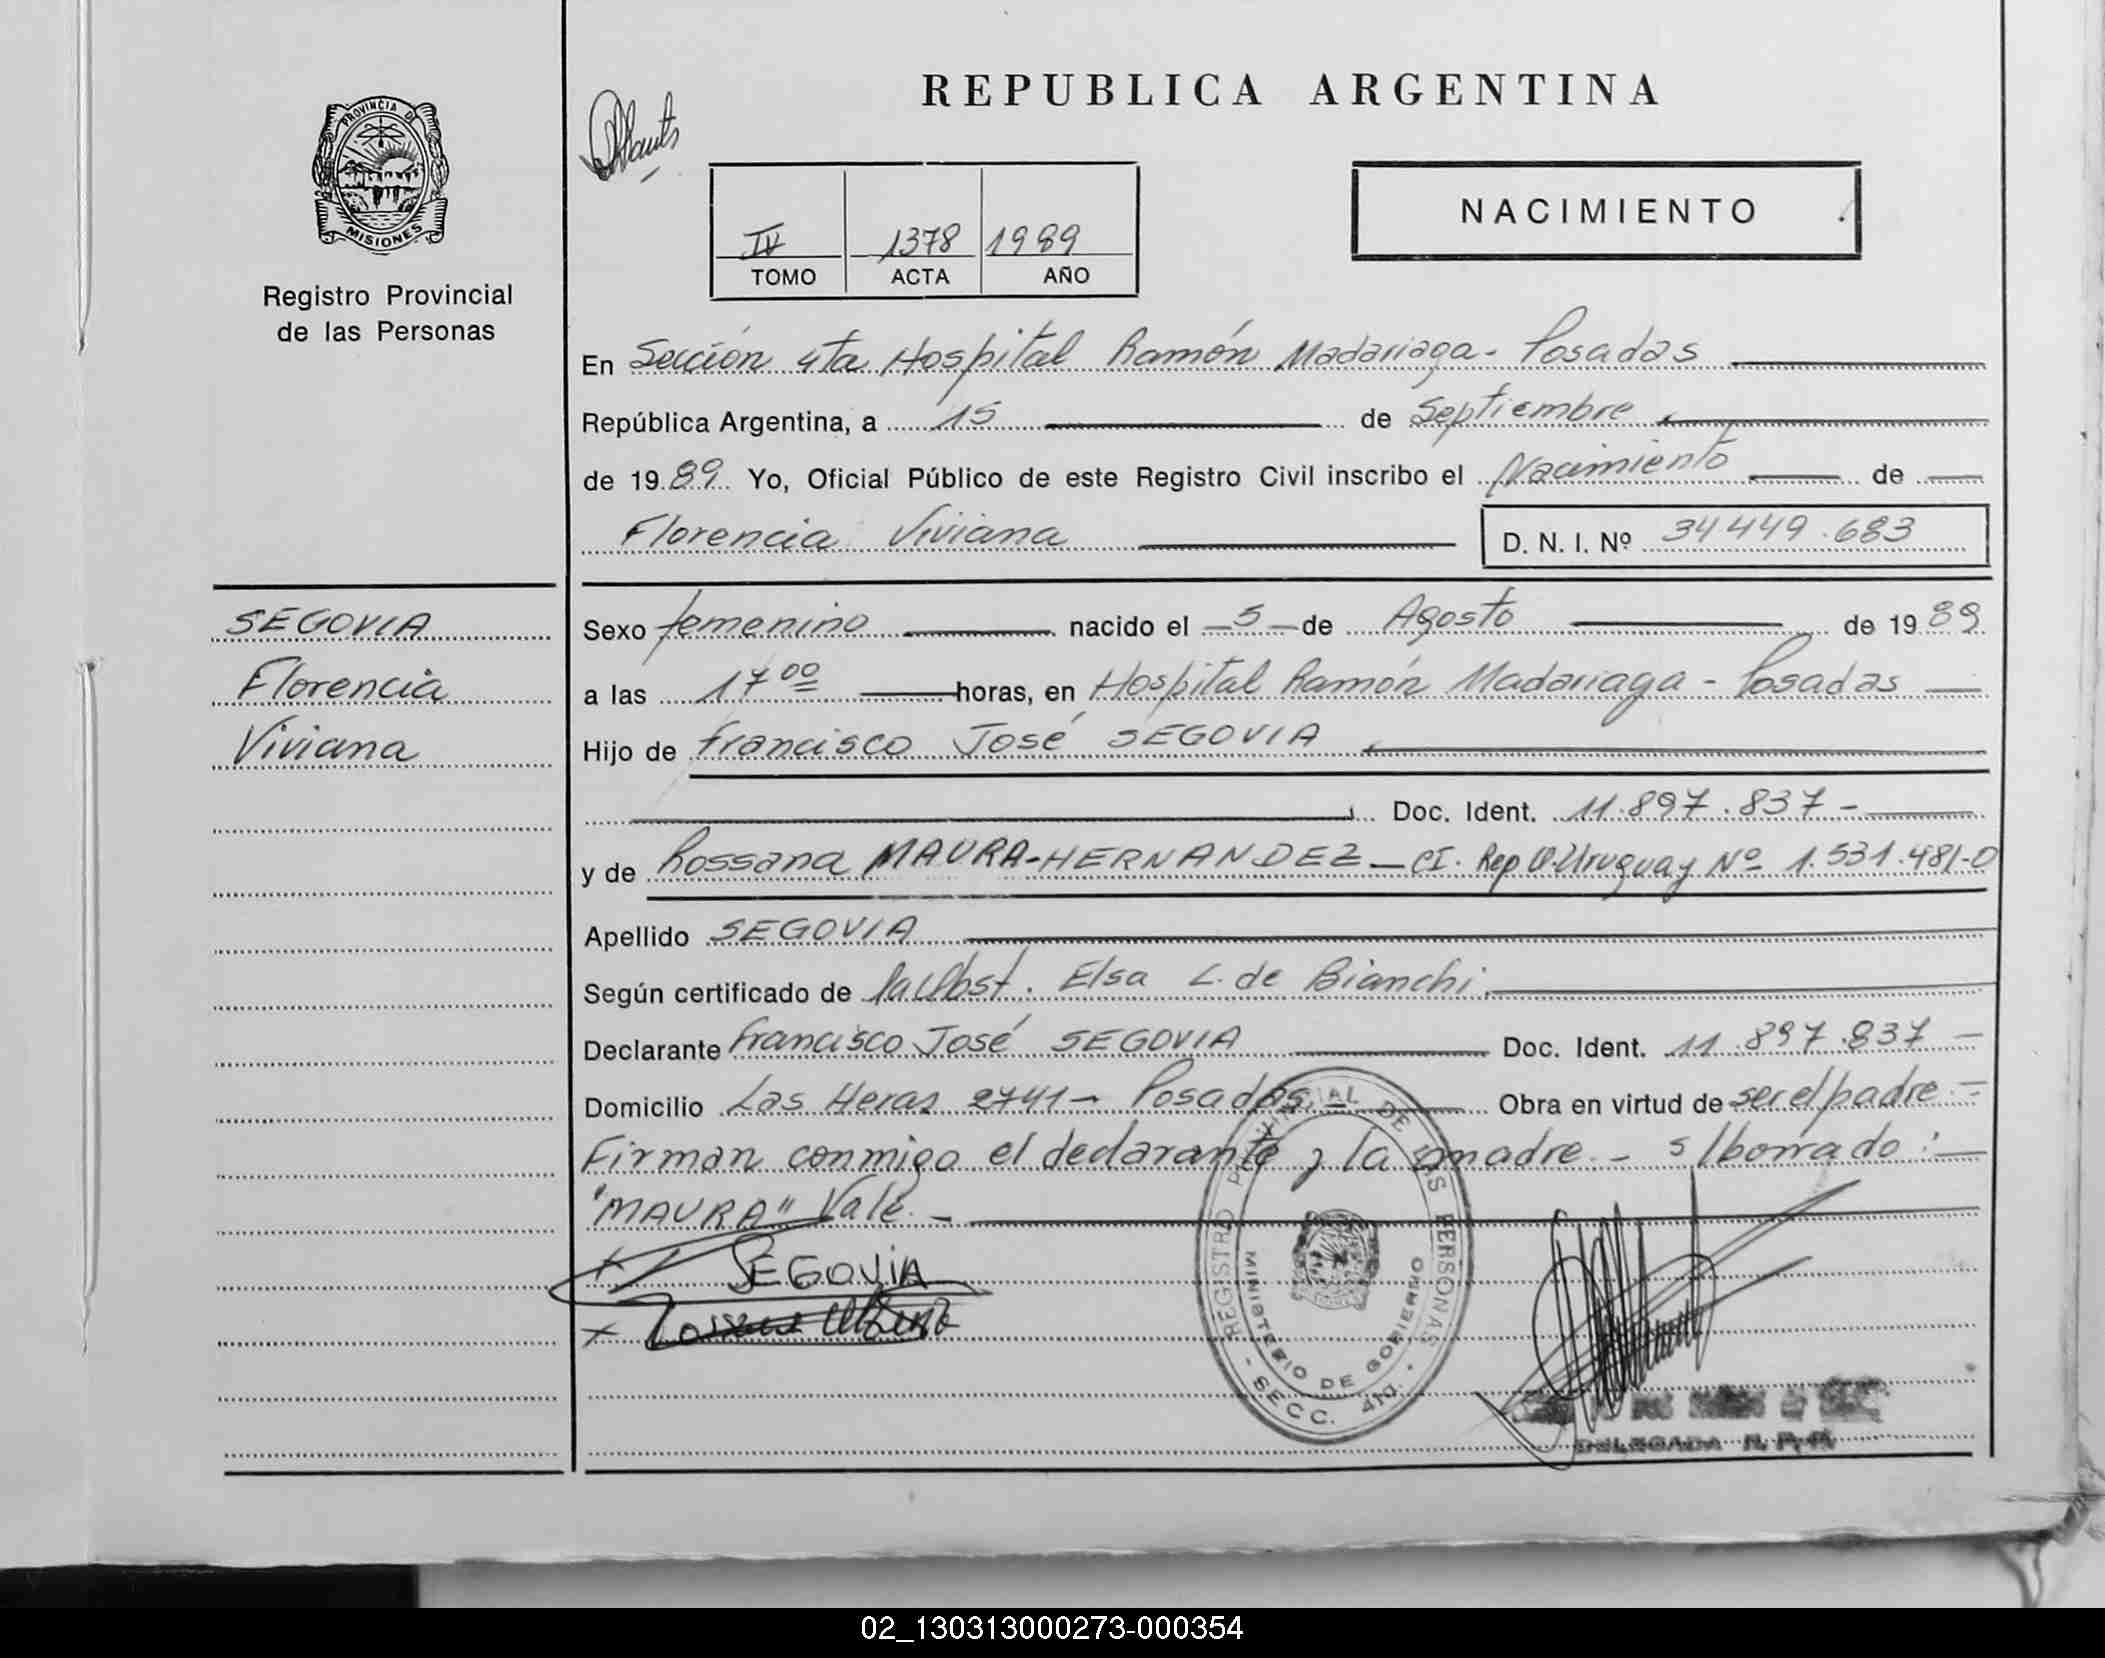 REPUBLICA ARGENTINA
PROVINCIA DE
MISIONES
Registro Provincial
de las Personas
IV 1378 1989
TOMO ACTA AÑO
NACIMIENTO
En Sección 4ta Hospital Ramón Madariaga - Posadas
República Argentina, a 15 de Septiembre
de 1989. Yo, Oficial Público de este Registro Civil inscribo el Nacimiento de
Florencia Viviana D. N. I. Nº 34449.683
SEGOVIA
Florencia
Viviana
Sexo femenino nacido el 5 de Agosto de 1989
a las 17 00 horas, en Hospital Ramón Madariaga - Posadas
Hijo de Francisco José SEGOVIA
Doc. Ident. 11.897.837 -
y de Rossana MAURA-HERNANDEZ - CI. Rep O. Uruguay Nº 1.531.481-0
Apellido SEGOVIA
Según certificado de la Obst. Elsa L. de Bianchi.
Declarante Francisco José SEGOVIA Doc. Ident. 11.897.837 -
Domicilio Las Heras 2741 - Posadas Obra en virtud de ser el padre -
Firman conmigo el declarante y la madre. - s/borrado:
"MAURA" Vale. -
SEGOVIA
REGISTRO PROVINCIAL DE LAS PERSONAS
MINISTERIO DE GOBIERNO
- SECC. 4ta. -
DELEGADA R. P. P.
02_130313000273-000354